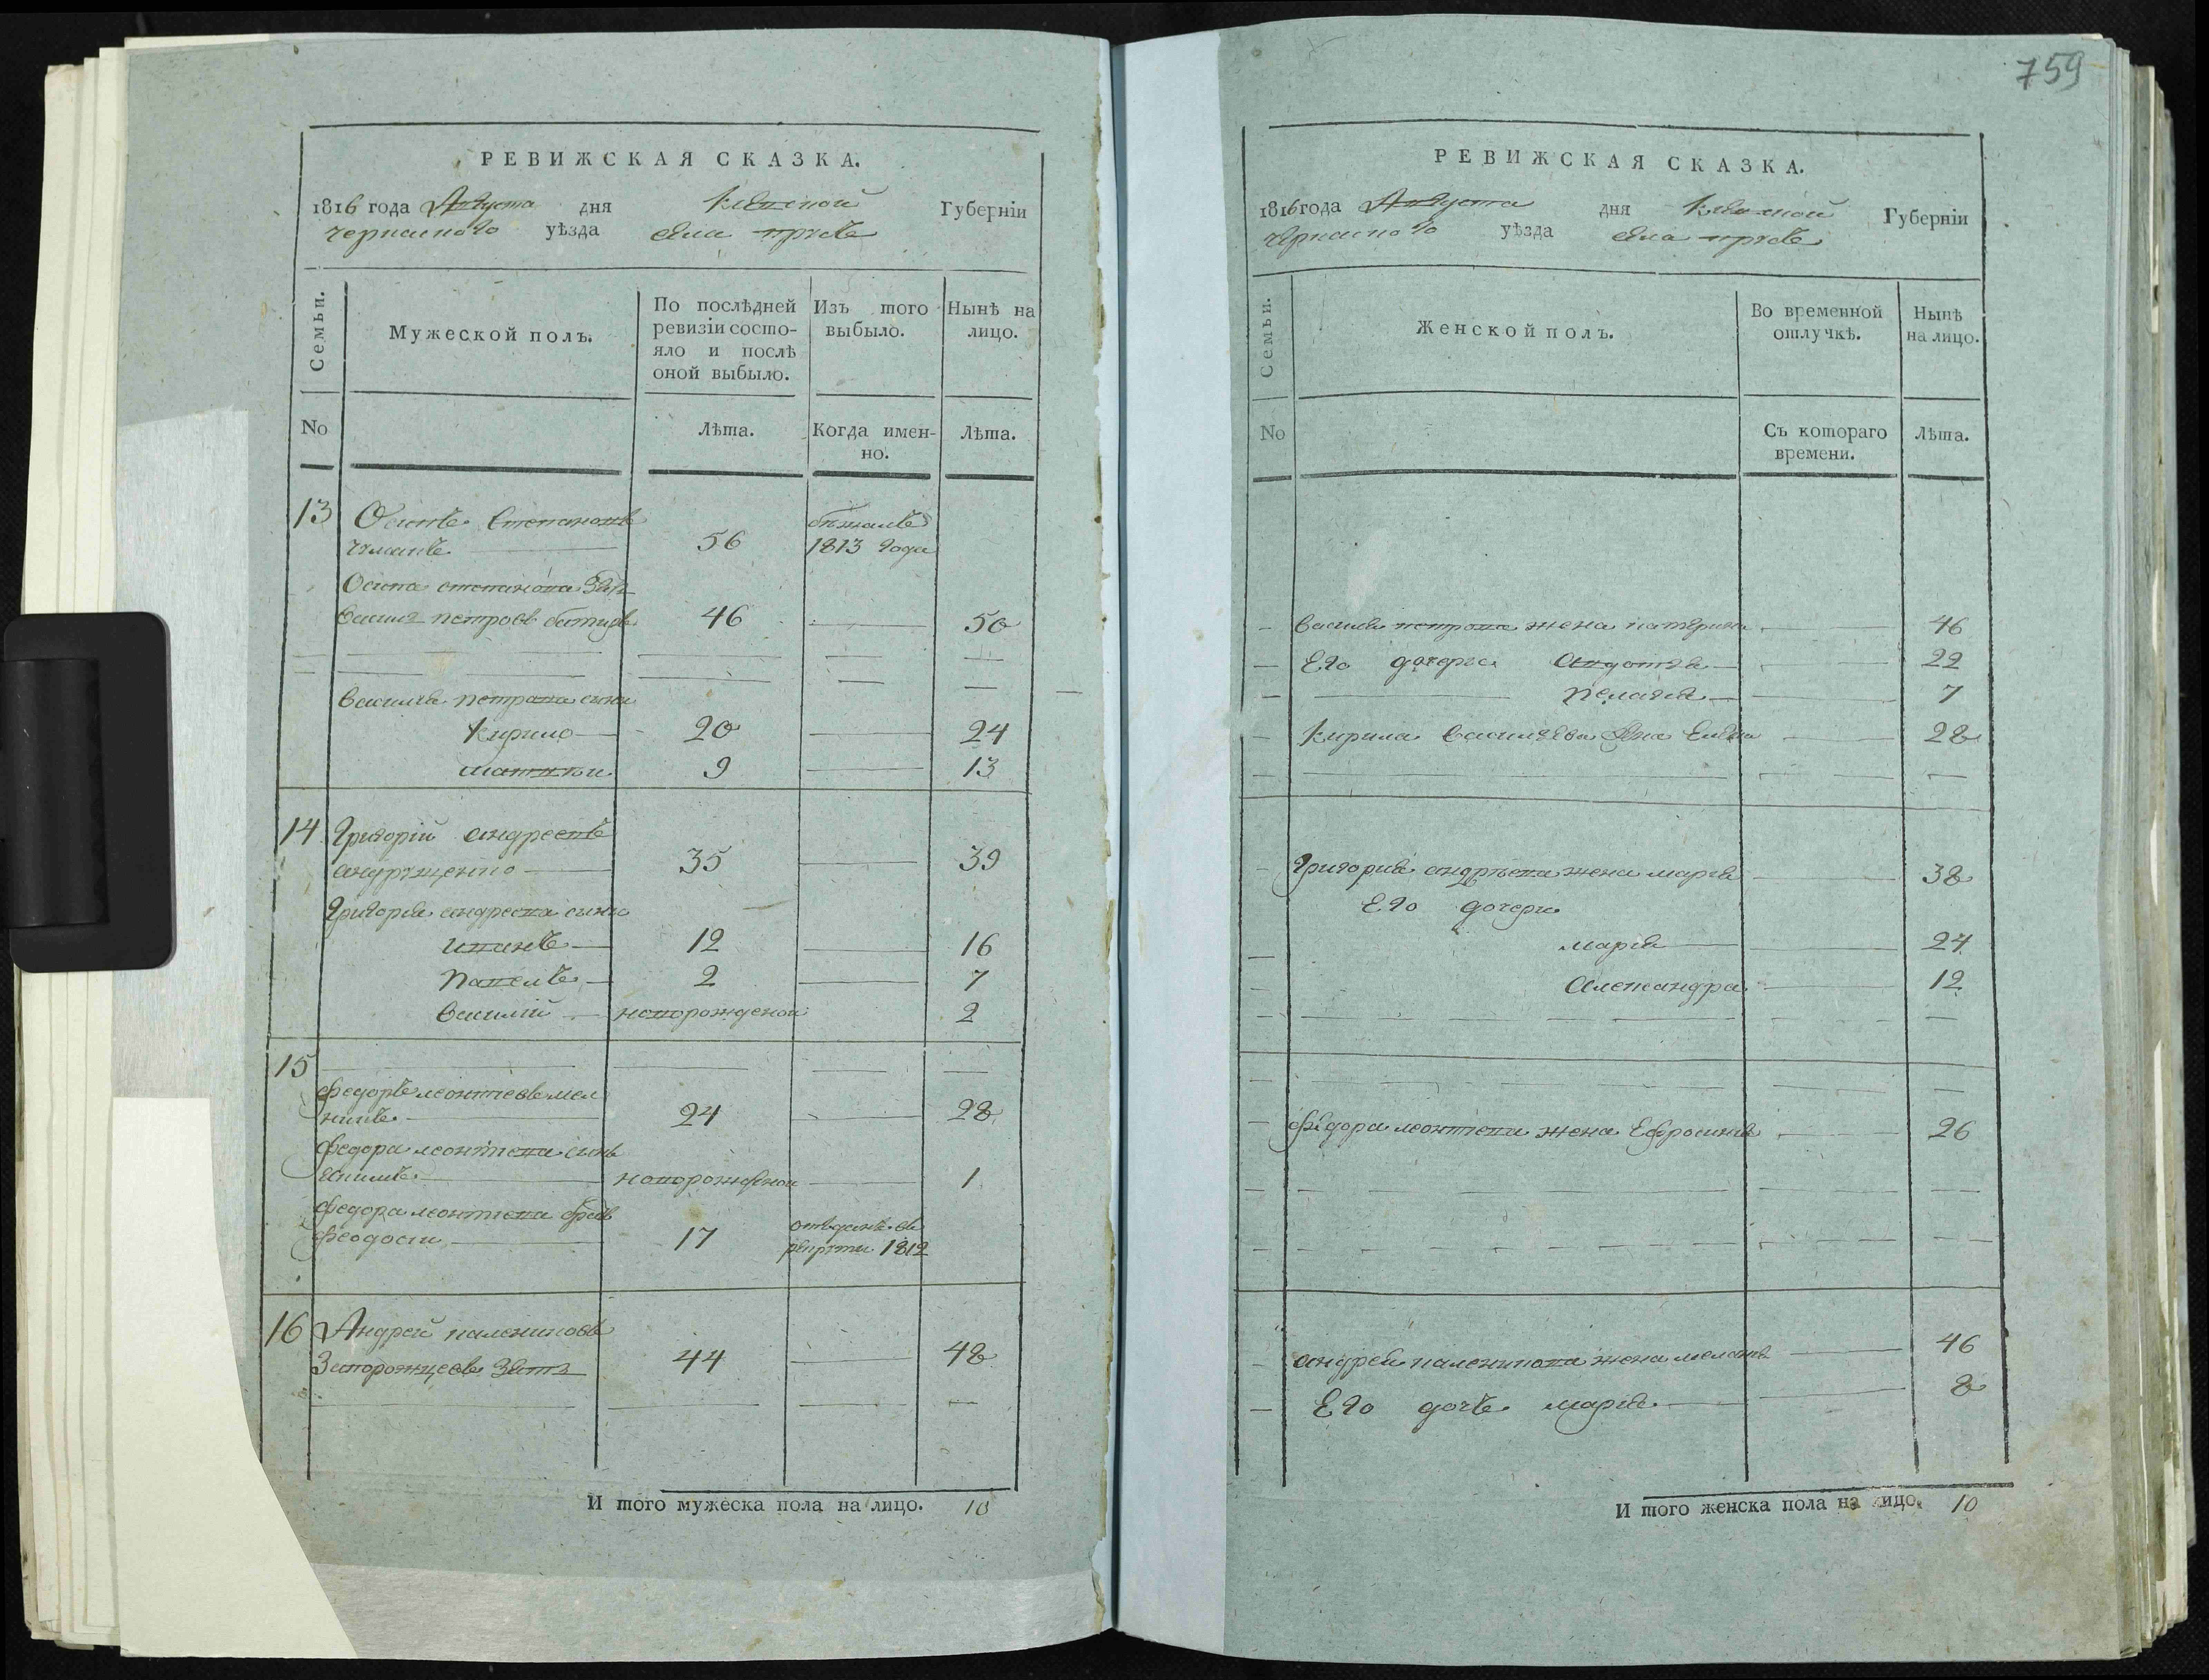 РЕВИЖСКАЯ СКАЗКА.
1816 года Августа дня Киевской Губерніи
черкаского уѣзда села
Семьи.
Мужеской полъ.
По послѣдней ревизіи состо-
яло и послѣ оной выбыло.
Изъ того выбыло.
Нынѣ на лицо.
No
Лѣта.
Когда имен-
но.
Лѣта.
13 Осипъ Степановъ
чумакъ 56 бѣжалъ 1813 года
Осипа степанова зять
василь петровъ 46 50
василия петрова сыны
Кирило 20 24
матвѣи 9 13
14 Григорій андреевъ
андрущенко 35 39
Григория андреева сыны
иванъ 12 16
павелъ 2 7
василій новорожденои 2
15
федоръ леонтиевъ мел
никъ 24 28
федора леонтиева сынъ
Якимъ новорожденои 1
федора леонтиева братъ
феодоси 17 отъданъ въ рекруты 1812
16 Андрей
Запорожцевъ зять 44 48
И того мужеска пола на лицо. 10
759
РЕВИЖСКАЯ СКАЗКА.
1816 года Августа дня Киевской Губерніи
черкаского уѣзда села
Семьи.
Женской полъ.
Во временной отлучкѣ.
Нынѣ на лицо.
No
Съ котораго времени.
Лѣта.
василия петрова жена катерина 46
Его дочери Авдотия 22
пелагия 7
Кирила василиева жена Елена 28
Григория андрѣева жена мария 38
Его дочери
мария 24
Александра 12
федора леонтиева жена Ефросиния 26
андрея жена мелания 46
Его дочь мария 8
И того женска пола на лицо. 10